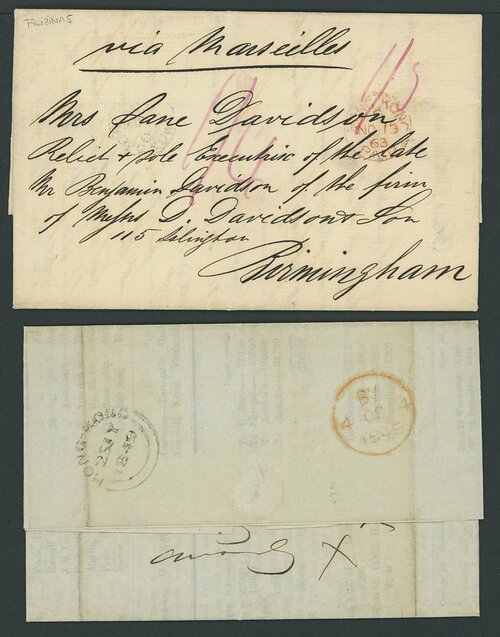 FILIPINAS
via Marseilles
1/3
Mrs Jane Davidson
Relict & sole Executrix of the late
Mr Benjamin Davidson of the firm
of Messrs D. Davidson & Son
115 Islington
Birmingham
NO 13
63
HONG-KONG
BY
OC
1845
4 4
X